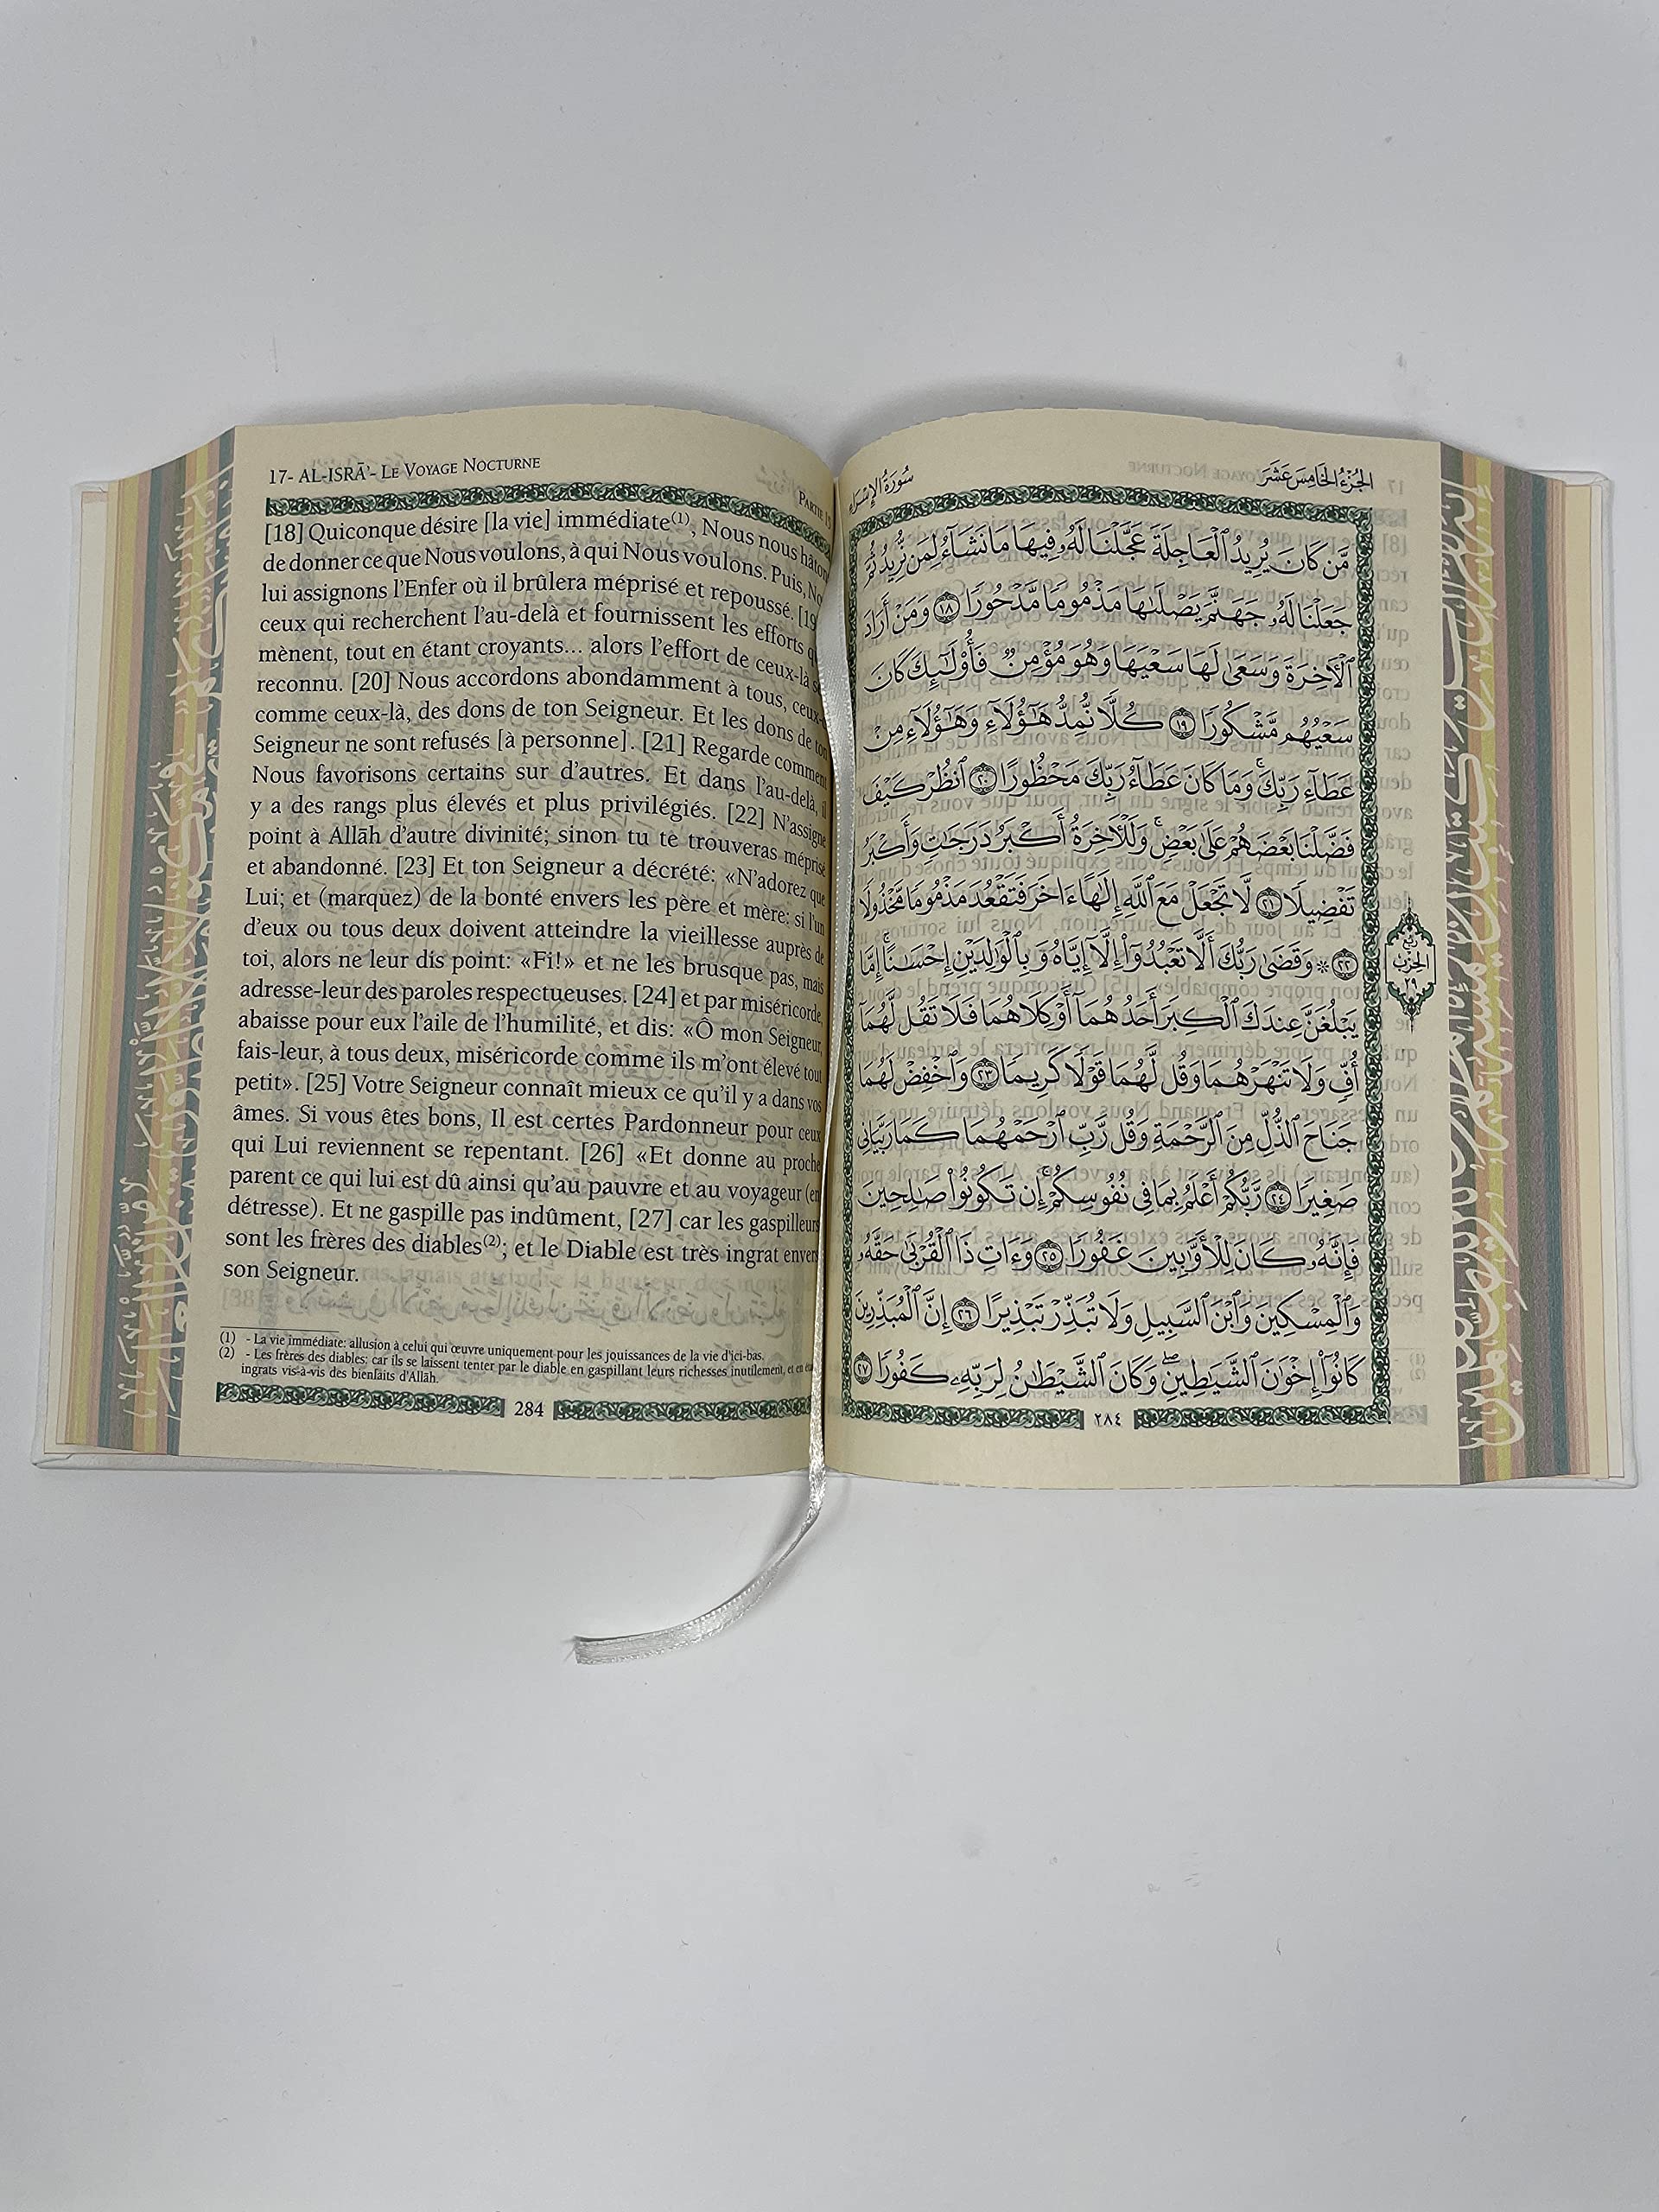 17- AL-ISRĀ’- LE VOYAGE NOCTURNE
PARTIE 15
[18] Quiconque désire [la vie] immédiate(1), Nous nous
de donner ce que Nous voulons, à qui Nous voulons. Puis,
lui assignons l’Enfer où il brûlera méprisé et repoussé. [19
ceux qui recherchent l’au-delà et fournissent les efforts
mènent, tout en étant croyants... alors l’effort de ceux-là
reconnu. [20] Nous accordons abondamment à tous,
comme ceux-là, des dons de ton Seigneur. Et les dons de ton
Seigneur ne sont refusés [à personne]. [21] Regarde comment
Nous favorisons certains sur d’autres. Et dans l’au-delà, il
y a des rangs plus élevés et plus privilégiés. [22] N’assigne
point à Allāh d’autre divinité; sinon tu te trouveras méprisé
et abandonné. [23] Et ton Seigneur a décrété: «N’adorez que
Lui; et (marquez) de la bonté envers les père et mère: si l’un
d’eux ou tous deux doivent atteindre la vieillesse auprès de
toi, alors ne leur dis point: «Fi!» et ne les brusque pas, mais
adresse-leur des paroles respectueuses. [24] et par miséricorde,
abaisse pour eux l’aile de l’humilité, et dis: «Ô mon Seigneur,
fais-leur, à tous deux, miséricorde comme ils m’ont élevé tout
petit». [25] Votre Seigneur connaît mieux ce qu’il y a dans vos
âmes. Si vous êtes bons, Il est certes Pardonneur pour ceux
qui Lui reviennent se repentant. [26] «Et donne au proche
parent ce qui lui est dû ainsi qu’au pauvre et au voyageur (en
détresse). Et ne gaspille pas indûment, [27] car les gaspilleurs
sont les frères des diables(2); et le Diable est très ingrat envers
son Seigneur.
(1) - La vie immédiate: allusion à celui qui œuvre uniquement pour les jouissances de la vie d'ici-bas.
(2) - Les frères des diables: car ils se laissent tenter par le diable en gaspillant leurs richesses inutilement, et
ingrats vis-à-vis des bienfaits d'Allāh.
284
الجُزْءُ الخَامِسَ عَشَرَ
سُورَةُ الإِسْرَاءِ
مَّن كَانَ يُرِيدُ ٱلْعَاجِلَةَ عَجَّلْنَا لَهُۥ فِيهَا مَا نَشَآءُ لِمَن نُّرِيدُ ثُمَّ
جَعَلْنَا لَهُۥ جَهَنَّمَ يَصْلَىٰهَا مَذْمُومًا مَّدْحُورًا ١٨ وَمَنْ أَرَادَ
ٱلْءَاخِرَةَ وَسَعَىٰ لَهَا سَعْيَهَا وَهُوَ مُؤْمِنٌ فَأُو۟لَٰٓئِكَ كَانَ
سَعْيُهُم مَّشْكُورًا ١٩ كُلًّا نُّمِدُّ هَٰٓؤُلَآءِ وَهَٰٓؤُلَآءِ مِنْ
عَطَآءِ رَبِّكَ ۚ وَمَا كَانَ عَطَآءُ رَبِّكَ مَحْظُورًا ٢٠ ٱنظُرْ كَيْفَ
فَضَّلْنَا بَعْضَهُمْ عَلَىٰ بَعْضٍ ۚ وَلَلْءَاخِرَةُ أَكْبَرُ دَرَجَٰتٍ وَأَكْبَرُ
تَفْضِيلًا ٢١ لَّا تَجْعَلْ مَعَ ٱللَّهِ إِلَٰهًا ءَاخَرَ فَتَقْعُدَ مَذْمُومًا مَّخْذُولًا
٢٢ ۞ وَقَضَىٰ رَبُّكَ أَلَّا تَعْبُدُوٓا۟ إِلَّآ إِيَّاهُ وَبِٱلْوَٰلِدَيْنِ إِحْسَٰنًا ۚ إِمَّا
يَبْلُغَنَّ عِندَكَ ٱلْكِبَرَ أَحَدُهُمَآ أَوْ كِلَاهُمَا فَلَا تَقُل لَّهُمَآ
أُفٍّ وَلَا تَنْهَرْهُمَا وَقُل لَّهُمَا قَوْلًا كَرِيمًا ٢٣ وَٱخْفِضْ لَهُمَا
جَنَاحَ ٱلذُّلِّ مِنَ ٱلرَّحْمَةِ وَقُل رَّبِّ ٱرْحَمْهُمَا كَمَا رَبَّيَانِى
صَغِيرًا ٢٤ رَّبُّكُمْ أَعْلَمُ بِمَا فِى نُفُوسِكُمْ ۚ إِن تَكُونُوا۟ صَٰلِحِينَ
فَإِنَّهُۥ كَانَ لِلْأَوَّٰبِينَ غَفُورًا ٢٥ وَءَاتِ ذَا ٱلْقُرْبَىٰ حَقَّهُۥ
وَٱلْمِسْكِينَ وَٱبْنَ ٱلسَّبِيلِ وَلَا تُبَذِّرْ تَبْذِيرًا ٢٦ إِنَّ ٱلْمُبَذِّرِينَ
كَانُوٓا۟ إِخْوَٰنَ ٱلشَّيَٰطِينِ ۖ وَكَانَ ٱلشَّيْطَٰنُ لِرَبِّهِۦ كَفُورًا ٢٧
ربع
الحزب
٢٩
٢٨٤